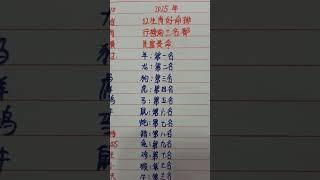 2025年
12生肖好命排
行榜前三名都
是富贵命
羊:第一名
龙:第二名
狗:第三名
虎:第四名
马:第五名
鼠:第六名
蛇:第七名
猪:第八名
兔:第九名
鸡:第十名
猴:第十一名
牛:第十二名